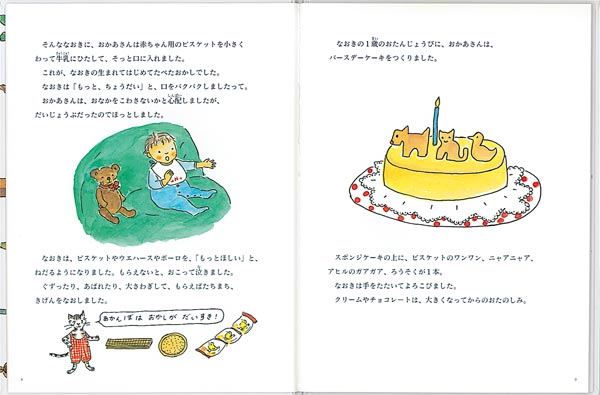 そんななおきに、おかあさんは赤ちゃん用のビスケットを小さく
わって牛乳にひたして、そっと口に入れました。
これが、なおきの生まれてはじめてたべたおかしでした。
なおきは「もっと、ちょうだい」と、口をパクパクしましたって。
おかあさんは、おなかをこわさないかと心配しましたが、
だいじょうぶだったのでほっとしました。
なおきは、ビスケットやウエハースやボーロを、「もっとほしい」と、
ねだるようになりました。もらえないと、おこって泣きました。
ぐずったり、あばれたり、大さわぎして、もらえばたちまち、
きげんをなおしました。
あかんぼは おかしが だいすき!
なおきの1歳のおたんじょうびに、おかあさんは、
バースデーケーキをつくりました。
スポンジケーキの上に、ビスケットのワンワン、ニャアニャア、
アヒルのガアガア、ろうそくが1本。
なおきは手をたたいてよろこびました。
クリームやチョコレートは、大きくなってからのおたのしみ。